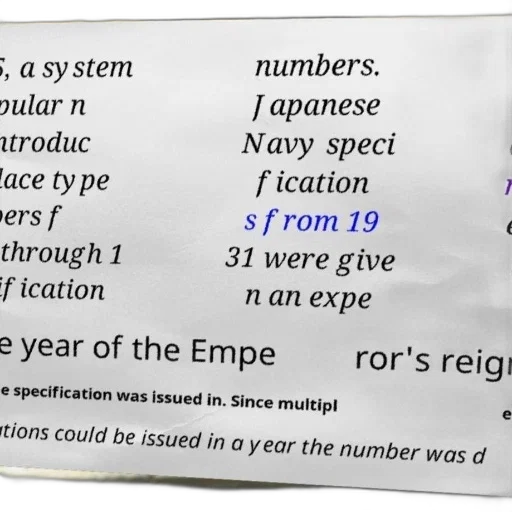 , a system
pular n
ntroduc
lace type
ers f
through 1
ification
numbers.
Japanese
Navy speci
fication
s from 19
31 were give
n an expe
e year of the Empe ror's reig
e specification was issued in. Since multipl e
ations could be issued in a year the number was d